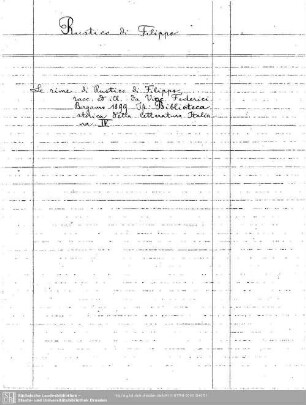 Rustico di Filippo
Le rime di Rustico di Filippo
racc. ed ill. da Vinc. Federici
Bergamo 1899. Biblioteca
storica della letteratura Italia
na. IV.
Sächsische Landesbibliothek -
Staats- und Universitätsbibliothek Dresden